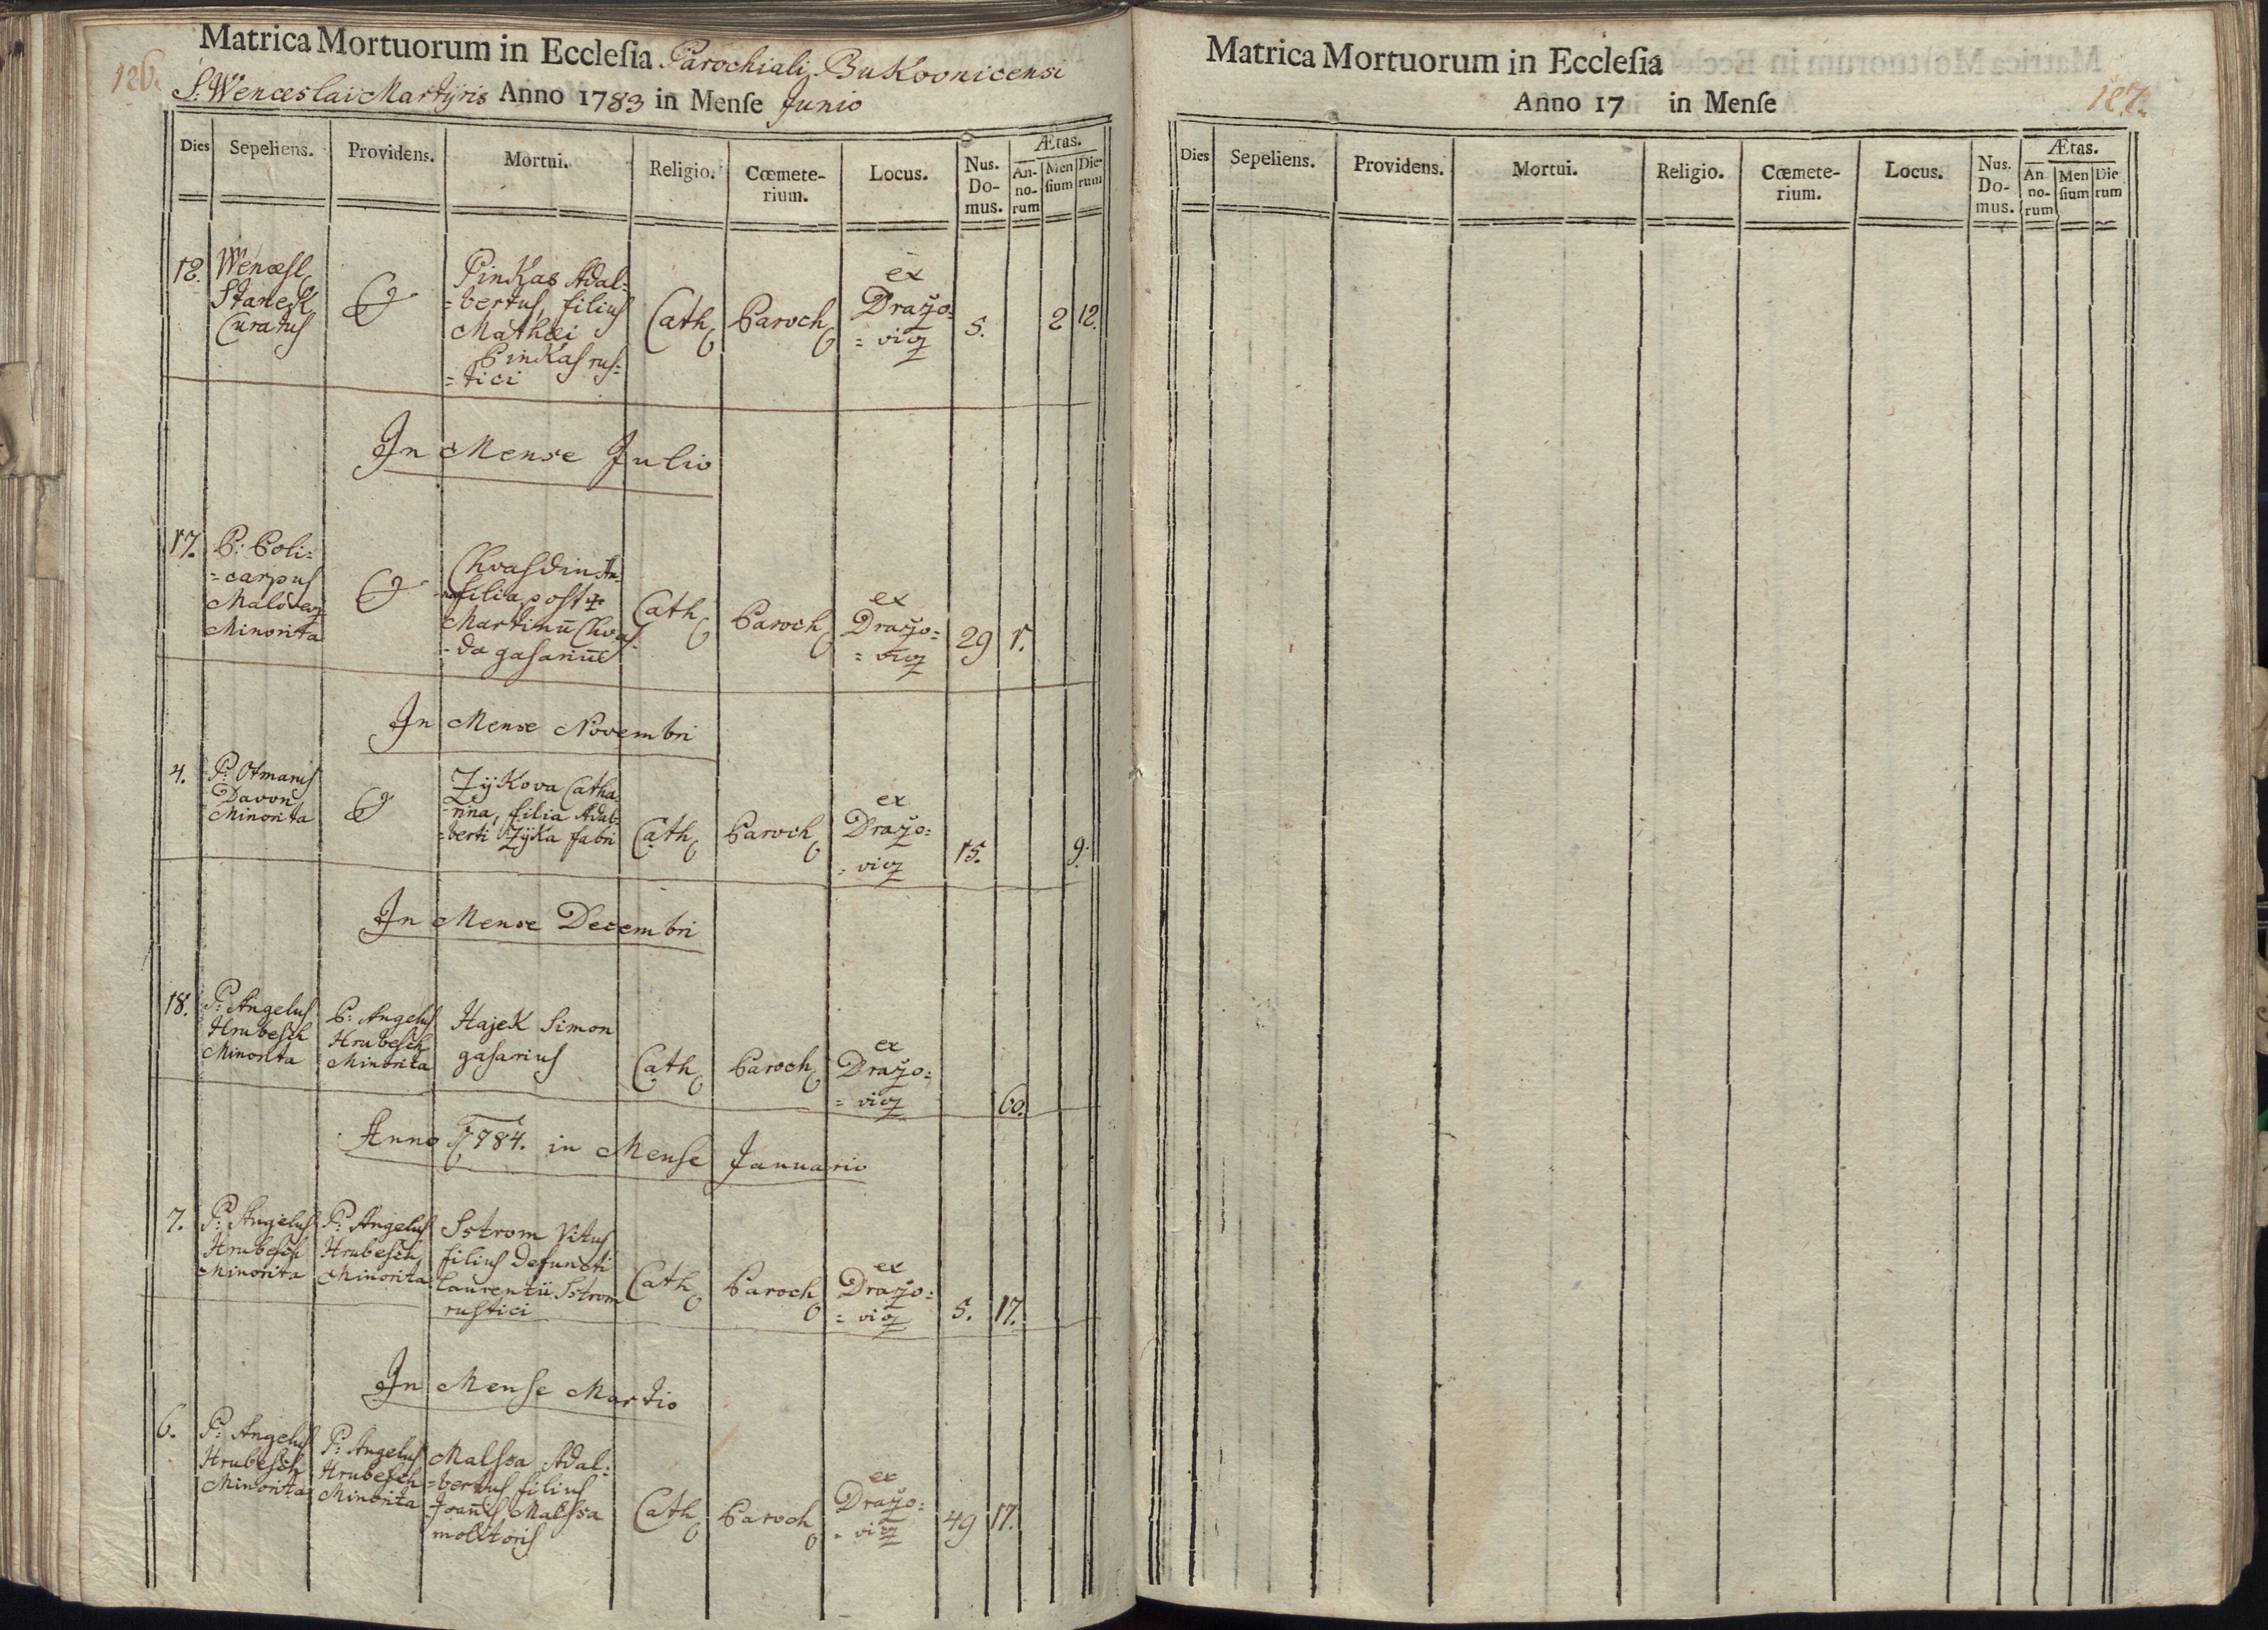 126.
Matrica Mortuorum in Ecclesia Parochiali Bukovnicensi
S: Wenceslai Martyris Anno 1783 in Mense Junio
Dies Sepeliens. Providens. Mortui. Religio. Cœmete-rium. Locus. Nus. Do-mus. Ætas. An-no-rum Men sium Die-rum
12. Wencesl Stanek Curatus
Pinkas Adal=
=bertus, filius
Mathæi
Pinkas rus=
=tici
Cath Paroch ex Drażo= =vicz 5. 2 12.
In Mense Julio
17. P: Poli=
=carpus
Minorita
Chvasdin
filia post
Martinū Chvas
=da gasariūs
Cath Paroch ex Drażo= =vicz 29 1.
In Mense Novembri
4. P: Otmarus
Davon
Minorita
Zÿkova Catha
=rina, filia Adal=
=berti Zÿka fabri
Cath Paroch ex Drażo= =vicz 15. 9.
In Mense Decembri
18. P: Angelus
Hrubesch
Minorita
P: Angelus
Hrubesch
Minorita
Hajek Simon
gasarius
Cath Paroch ex Drażo= =vicz 60.
Anno 1784. in Mense Januario
7. P: Angelus
Hrubesch
Minorita
P: Angelus
Hrubesch
Minorita
Sstrom Vitus
filius Defuncti
Laurentii Sstrom
rustici
Cath Paroch ex Drażo= =vicz 5. 17.
In Mense Martio
6. P: Angelus
Hrubesch
Minorita
P: Angelus
Hrubesch
Minorita
Malssa Adal=
=bertus filius
Joan̄is Malssa
molitoris
Cath Paroch ex Drażo= =vicz 49 17.
127.
Matrica Mortuorum in Ecclesia
Anno 17 in Mense
Dies Sepeliens. Providens. Mortui. Religio. Cœmete-rium. Locus. Nus. Do-mus. Ætas. An no-rum Men sium Die rum